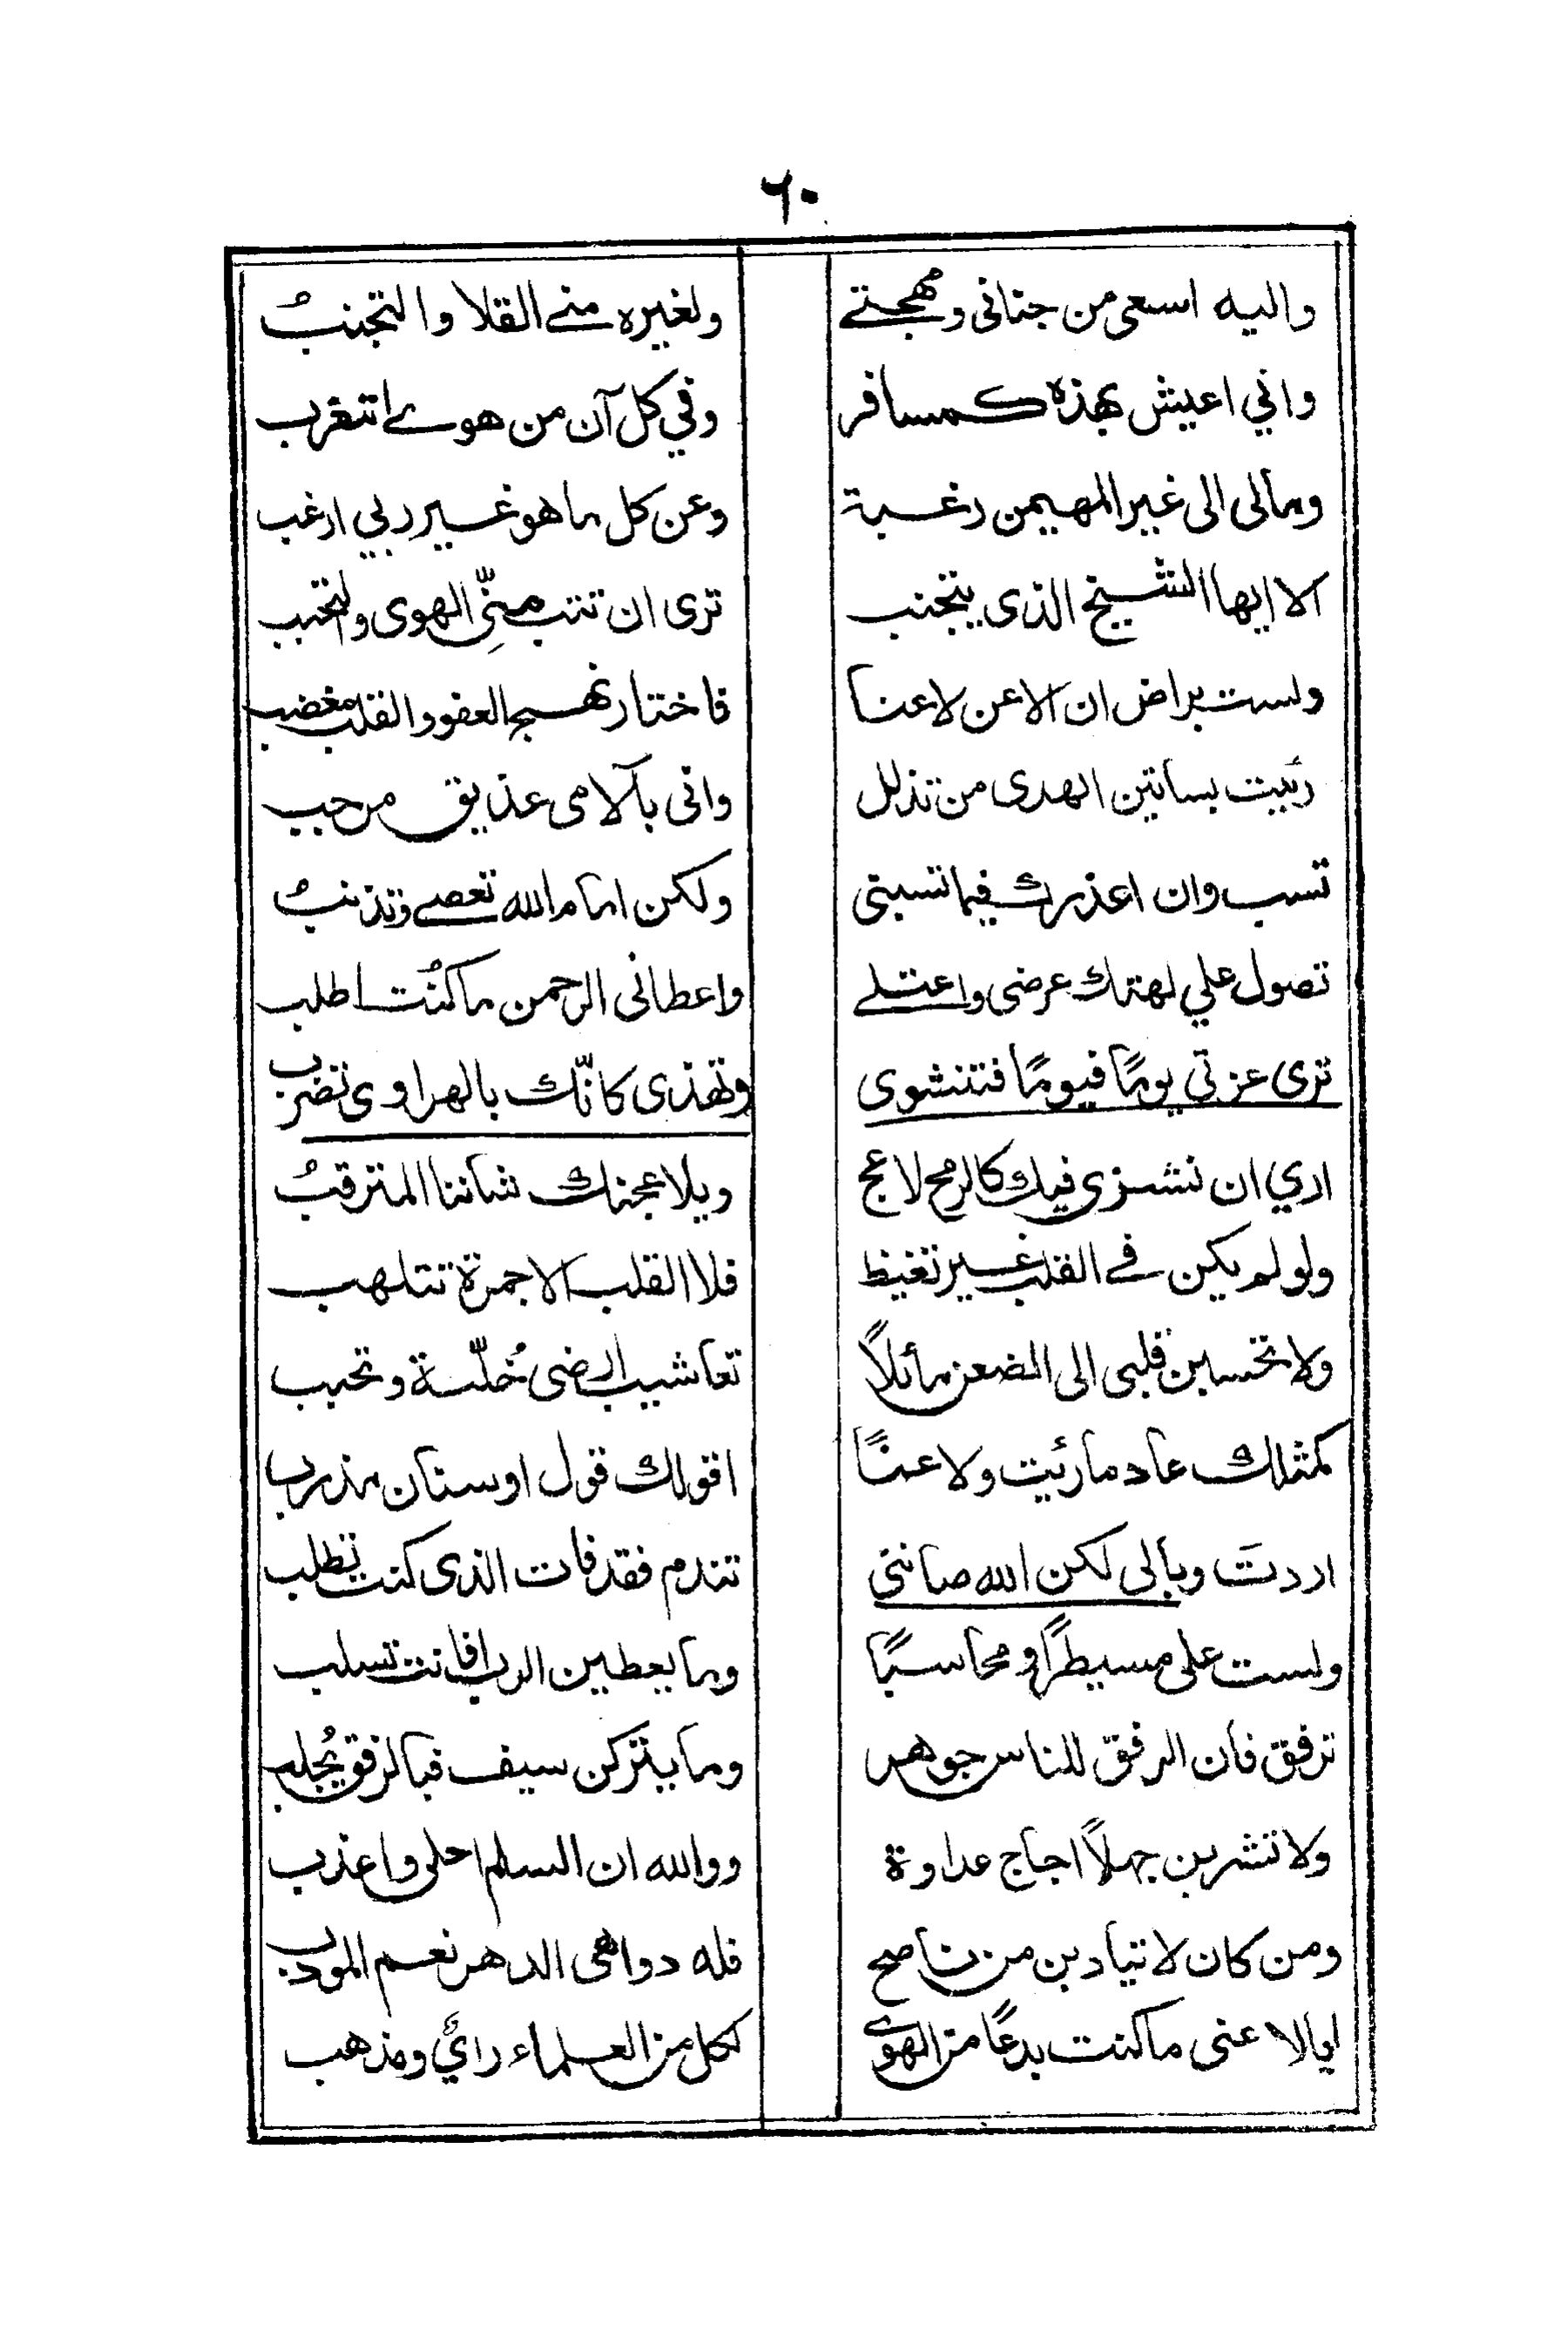 ٦٠
واليه اسعى من جنانى ومهجتے ولغيره منے القلا والتجنبُ
واني اعيش بهذه كمسافر وفي كل آن من هوے اتغرب
ومالى الى غير المهيمن رغبة وعن كل ما هو غير ربي ارغب
الا ايها الشيخ الذى يتجنب ترى ان تتب منّى الهوى والتحبب
ولست براض ان الاعن لاعنا فاختار نهج العفو والقلب مغضب
رئيت بساتين الهدى من تذلل وانى بآلامى عذيق مرحب
تسب وان اعذرك فيما تسبنى ولكن امام الله تعصے وتذنبُ
تصول علي لهتك عرضى واعتلے واعطانى الرحمن ما كنُت اطلب
ترى عزتي يومًا فيومًا فتنشوى وتهذى كانّك بالهراوى تضرب
اري ان نشزى فيك كالرمح لاعج ويلاعجنك شاننا المترقبُ
ولو لم يكن فے القلب غير تغيظ فلا القلب الا جمرة تتلهب
ولا تحسبن قلبى الى الضعن مائلاً تعاشيب ارضى خُلّسة وتحبب
كمثلك عاد مارئيت ولا عنًا اقولك قول او سنان مذرب
اردتَ وبالى لكن الله صاننى تندم فقد فات الذى كنت تطلب
ولست على مسيطرًا ومحاسبًا وما يعطين الرب افانت تسلب
ترفق فان الرفق للناس جوهر وما يتركن سيف فبالرفق يُجلب
ولا تشربن جهلاً اجاج عداوة ووالله ان السلم احلى واعذب
ومن كان لا يتادبن من ناصح فله دواهى الدهر نعم المودب
ايالاعنى ما كنت بدعًا من الهوى لكل من العلماء رائ ومذهب